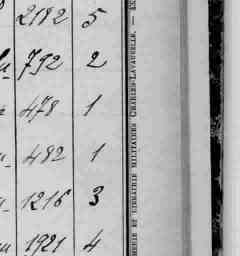 2182 5
792 2
478 1
482 1
1216 3
1921 4
MERIE ET LIBRAIRIE MILITAIRES CHARLES-LAVAUZELLE. —